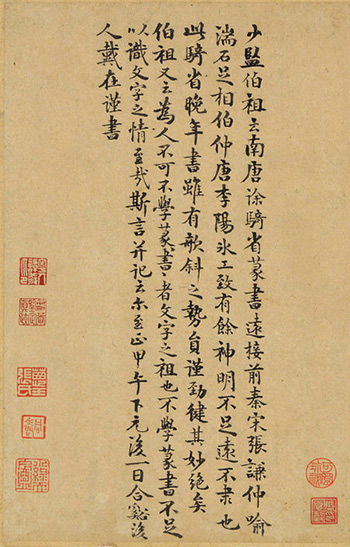 少監伯祖云南唐徐騎省篆書遠接前秦宋張謙仲喻
湍石足相伯仲唐李陽冰工致有餘神明不足遠不隶也
此騎省晚年書雖有欹斜之勢貟謹勁健其妙絕矣
伯祖又云為人不可不學篆書〻者文字之祖也不學篆書不足
以識文字之情至哉斯言并記云尒至正甲午下元後一日合谿後
人戴在謹書